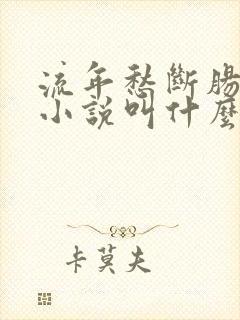 流年愁斷腸
小說叫什麼
卡莫夫